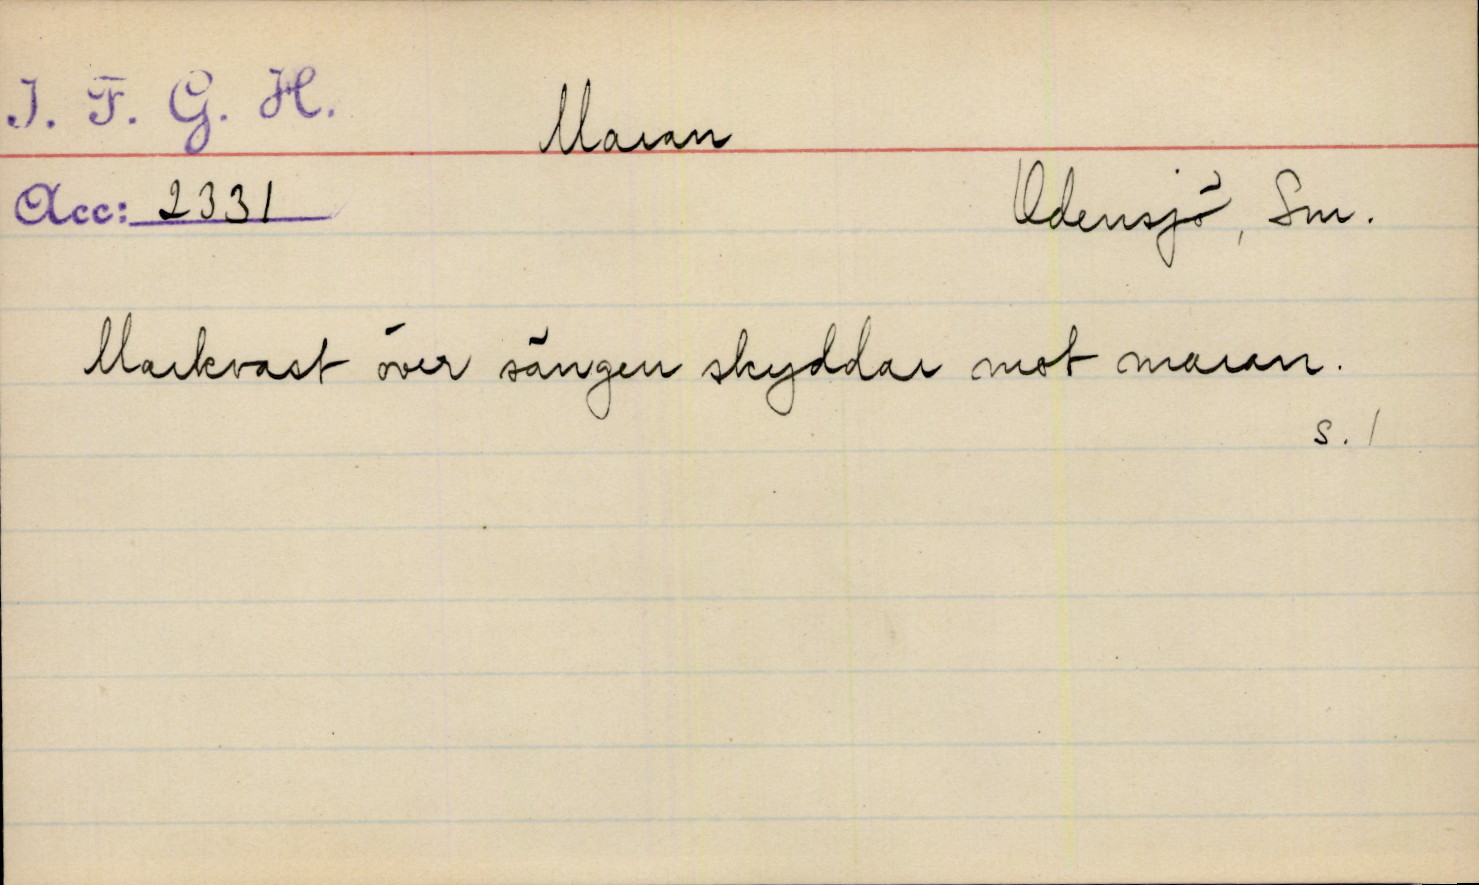 I. F. G. H.
Maran
Acc: 2331
Odensjö, Sm.
Markvast över sängen skyddar mot maran.
s. 1